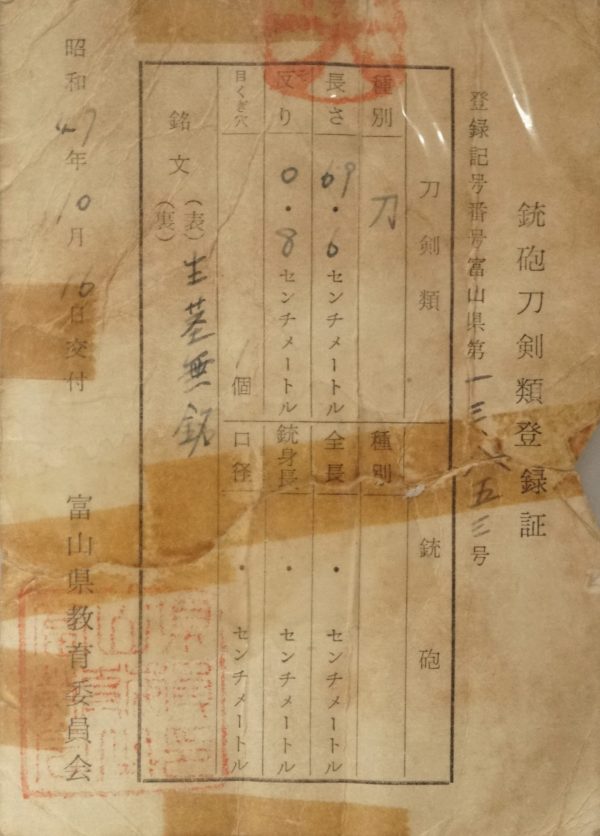 銃砲刀剣類登録証
登録記号番号富山県第一三、六五三号
刀剣類
種別 刀
長さ 69・6センチメートル
反り 0・8センチメートル
目くぎ穴 1個
銃砲
種別
全長 ・ センチメートル
銃身長 ・ センチメートル
口径 ・ センチメートル
銘文(表)生茎無銘
(裏)
昭和47年10月16日交付
富山県教育委員会